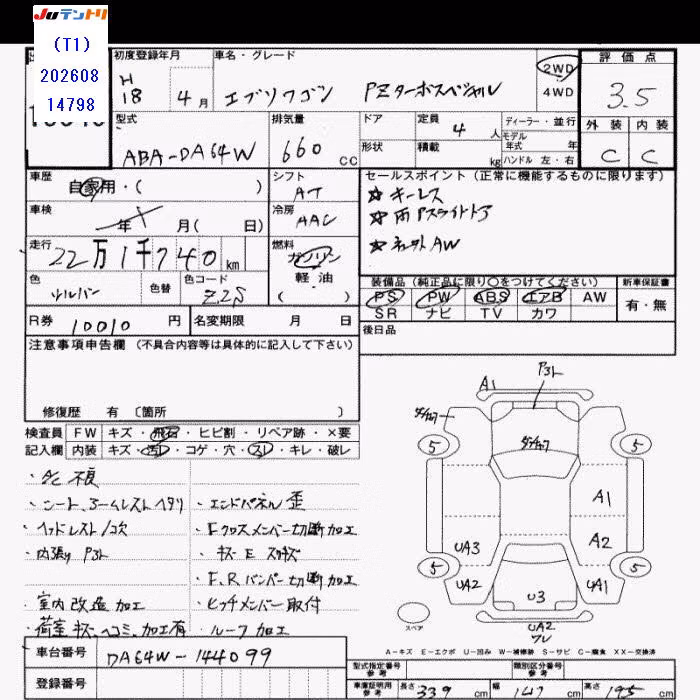 JUテントリ
(T1)
202608
14798
初度登録年月
車名・グレード
評価点
H
18
4月
エブリワゴン PZターボスペシャル
2WD
4WD
3.5
型式
排気量
ドア
定員
4人
ディーラー・並行
外装
内装
ABA-DA64W
660 cc
形状
積載
kg
モデル年式
年
ハンドル 左・右
C
C
車歴
自家用・( )
シフト
AT
セールスポイント (正常に機能するものに限ります)
☆ キーレス
☆ 両Pスライドドア
☆ 社外AW
車検
年 月( 日)
冷房
AAC
走行
22万1千740 km
燃料
ガソリン
軽・油
( )
色
シルバー
色替
色コード
Z2S
装備品 (純正品に限り○をつけてください)
新車保証書
PS PW ABS エアB AW
SR ナビ TV カワ
有・無
R券
10010円
名変期限 月 日
後日品
注意事項申告欄 (不具合内容等は具体的に記入して下さい)
修復歴 有 〔箇所 〕
検査員
記入欄
FW キズ・飛石・ヒビ割・リペア跡・×要
内装 キズ・汚レ・コゲ・穴・スレ・キレ・破レ
・A/C 不良
・シート、アームレスト ヘタリ
・ヘッドレスト1コ欠
・内張り P3ト
・室内改造加工
・荷室 キズ ヘコミ、加工有
・エンドパネル歪
・Fクロスメンバー切断加工
・キズ E スリキズ
・F、Rバンパー切断加工
・ヒッチメンバー取付
・ルーフ加工
A1
P3ト
5
5
A1
A2
UA3
5
5
UA2
UA1
U3
UA2
ワレ
スペア
A-キズ E-エクボ U-凹み W-補修跡 S-サビ C-腐食 XX-交換済
車台番号
DA64W-144099
登録番号
型式指定番号
参考
類別区分番号
参考
車庫証明用
参考
長さ 339 cm
幅 147 cm
高さ 195 cm